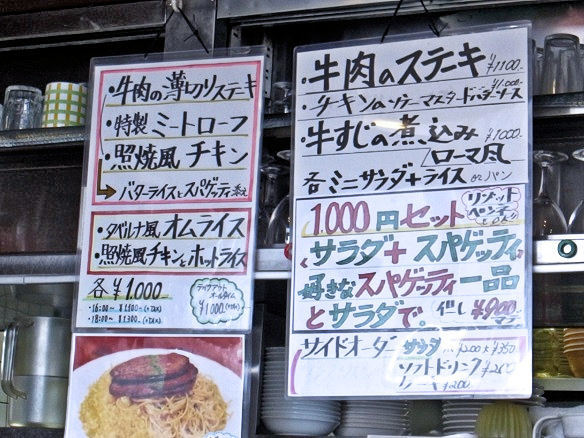 ・牛肉の薄切りステーキ
・特製 ミートローフ
・照焼風 チキン
→ バターライスとスパゲッティ添え
・タバルナ風 オムライス
・照焼風チキンとホットライス
各 ¥1.000-
テイクアウト
オールタイム
¥1000
・16:00〜 ¥1.100
・18:00〜 ¥1.300
・牛肉のステーキ ¥1100
・チキンのソテーマスタードバターソース ¥1,000
・牛すじの煮込み ¥1000
ローマ風
各 ミニサラダ+ライス or パン
1.000円セット
リゾット
ペンネ
サラダ+スパゲッティ
好きなスパゲッティ一品
とサラダで。但し¥900
マデ
サイドオーダー サラダ ¥350
ソフトドリンク ¥260
ケーキ ¥200